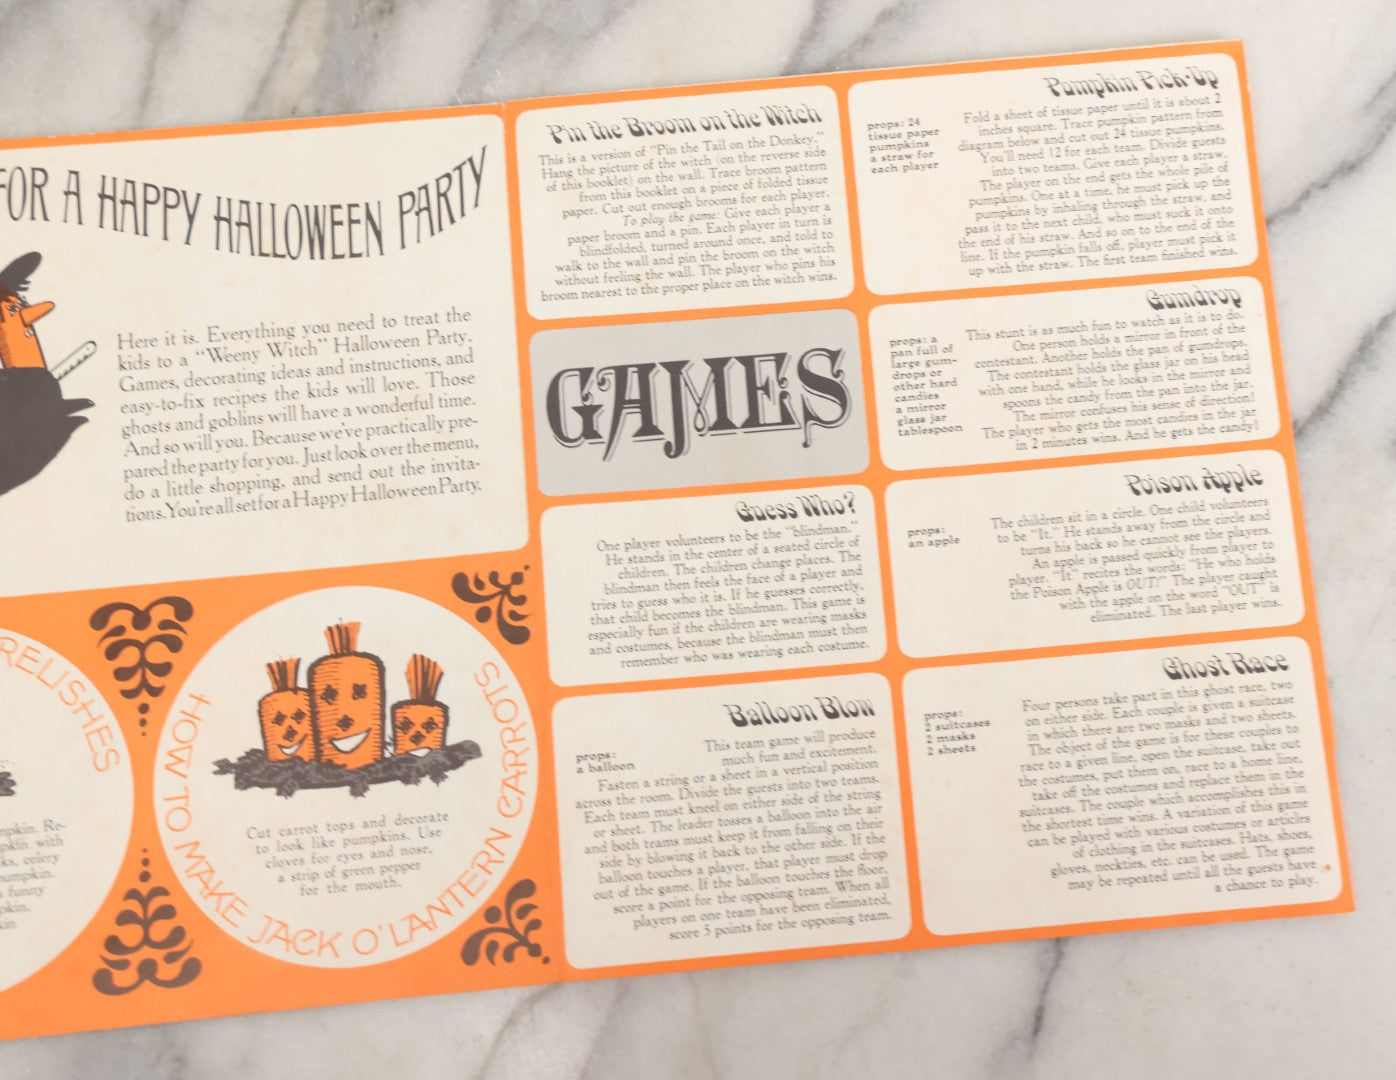 FOR A HAPPY HALLOWEEN PARTY
Here it is. Everything you need to treat the
kids to a “Weeny Witch” Halloween Party.
Games, decorating ideas and instructions, and
easy-to-fix recipes the kids will love. Those
ghosts and goblins will have a wonderful time.
And so will you. Because we've practically pre-
pared the party for you. Just look over the menu,
do a little shopping, and send out the invita-
tions. You're all set for a Happy Halloween Party.
RELISHES
pumpkin. Re-
pkin with
ks, celery
pumpkin.
a funny
pkin.
kin
HOW TO MAKE JACK O'LANTERN CARROTS
Cut carrot tops and decorate
to look like pumpkins. Use
cloves for eyes and nose,
a strip of green pepper
for the mouth.
Pin the Broom on the Witch
This is a version of “Pin the Tail on the Donkey.”
Hang the picture of the witch (on the reverse side
of this booklet) on the wall. Trace broom pattern
from this booklet on a piece of folded tissue
paper. Cut out enough brooms for each player.
To play the game: Give each player a
paper broom and a pin. Each player in turn is
blindfolded, turned around once, and told to
walk to the wall and pin the broom on the witch
without feeling the wall. The player who pins his
broom nearest to the proper place on the witch wins.
GAMES
Guess Who?
One player volunteers to be the “blindman.”
He stands in the center of a seated circle of
children. The children change places. The
blindman then feels the face of a player and
tries to guess who it is. If he guesses correctly,
that child becomes the blindman. This game is
especially fun if the children are wearing masks
and costumes, because the blindman must then
remember who was wearing each costume.
Balloon Blow
props:
a balloon
This team game will produce
much fun and excitement.
Fasten a string or a sheet in a vertical position
across the room. Divide the guests into two teams.
Each team must kneel on either side of the string
or sheet. The leader tosses a balloon into the air
and both teams must keep it from falling on their
side by blowing it back to the other side. If the
balloon touches a player, that player must drop
out of the game. If the balloon touches the floor,
score a point for the opposing team. When all
players on one team have been eliminated,
score 5 points for the opposing team.
Pumpkin Pick-Up
props: 24
tissue paper
pumpkins
a straw for
each player
Fold a sheet of tissue paper until it is about 2
inches square. Trace pumpkin pattern from
diagram below and cut out 24 tissue pumpkins.
You'll need 12 for each team. Divide guests
into two teams. Give each player a straw.
The player on the end gets the whole pile of
pumpkins. One at a time, he must pick up the
pumpkins by inhaling through the straw, and
pass it to the next child, who must suck it onto
the end of his straw. And so on to the end of the
line. If the pumpkin falls off, player must pick it
up with the straw. The first team finished wins.
Gumdrop
props: a
pan full of
large gum-
drops or
other hard
candies
a mirror
glass jar
tablespoon
This stunt is as much fun to watch as it is to do.
One person holds a mirror in front of the
contestant. Another holds the pan of gumdrops.
The contestant holds the glass jar on his head
with one hand, while he looks in the mirror and
spoons the candy from the pan into the jar.
The mirror confuses his sense of direction!
The player who gets the most candies in the jar
in 2 minutes wins. And he gets the candy!
Poison Apple
props:
an apple
The children sit in a circle. One child volunteers
to be “It.” He stands away from the circle and
turns his back so he cannot see the players.
An apple is passed quickly from player to
player. “It” recites the words: “He who holds
the Poison Apple is OUT!” The player caught
with the apple on the word “OUT” is
eliminated. The last player wins.
Ghost Race
props:
2 suitcases
2 masks
2 sheets
Four persons take part in this ghost race, two
on either side. Each couple is given a suitcase
in which there are two masks and two sheets.
The object of the game is for these couples to
race to a given line, open the suitcase, take out
the costumes, put them on, race to a home line,
take off the costumes and replace them in the
suitcases. The couple which accomplishes this in
the shortest time wins. A variation of this game
can be played with various costumes or articles
of clothing in the suitcases. Hats, shoes,
gloves, neckties, etc. can be used. The game
may be repeated until all the guests have
a chance to play.